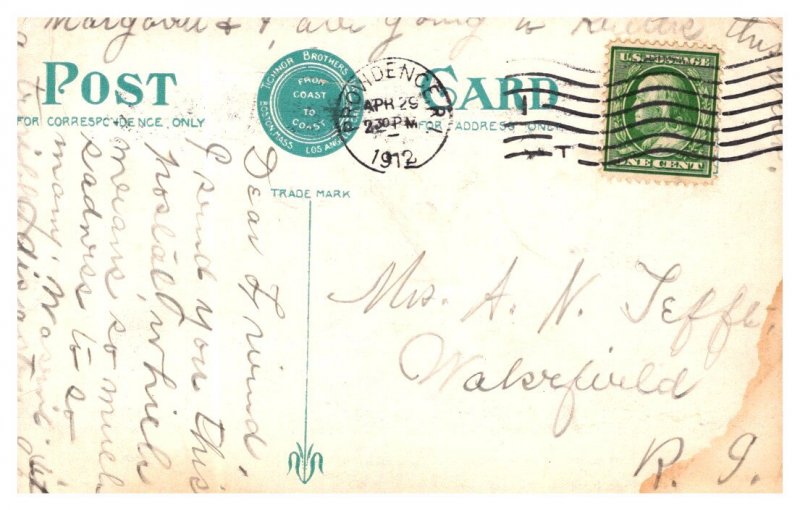 Margaret & I are going to
POST CARD
FOR CORRESPONDENCE ONLY
FOR ADDRESS ONLY
TICHNOR BROTHERS
FROM
COAST
TO
COAST
BOSTON, MASS. LOS ANG
TRADE MARK
PROVIDENCE R
APR 29
2 30 PM
1912
U.S. POSTAGE
ONE CENT
Dear Friend,
I send you this
postal, which
means so much
sadness to so
many. Wasn't it
Mrs. A. N. Tefft,
Wakefield
R. I.